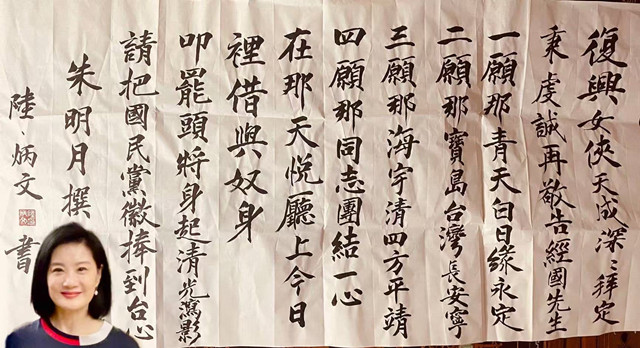 復興女俠天成深〻拜定
秉虔誠再敬告經國先生
一願那青天白日緣永定
二願那寶島台灣長安寧
三願那海宇清四方平靖
四願那同志團結一心
在那天悦廳上今日
裡借與奴身
叩罷頭將身起清光瀉影
請把國民黨徽捧到台心
朱明月撰
陸、炳文書